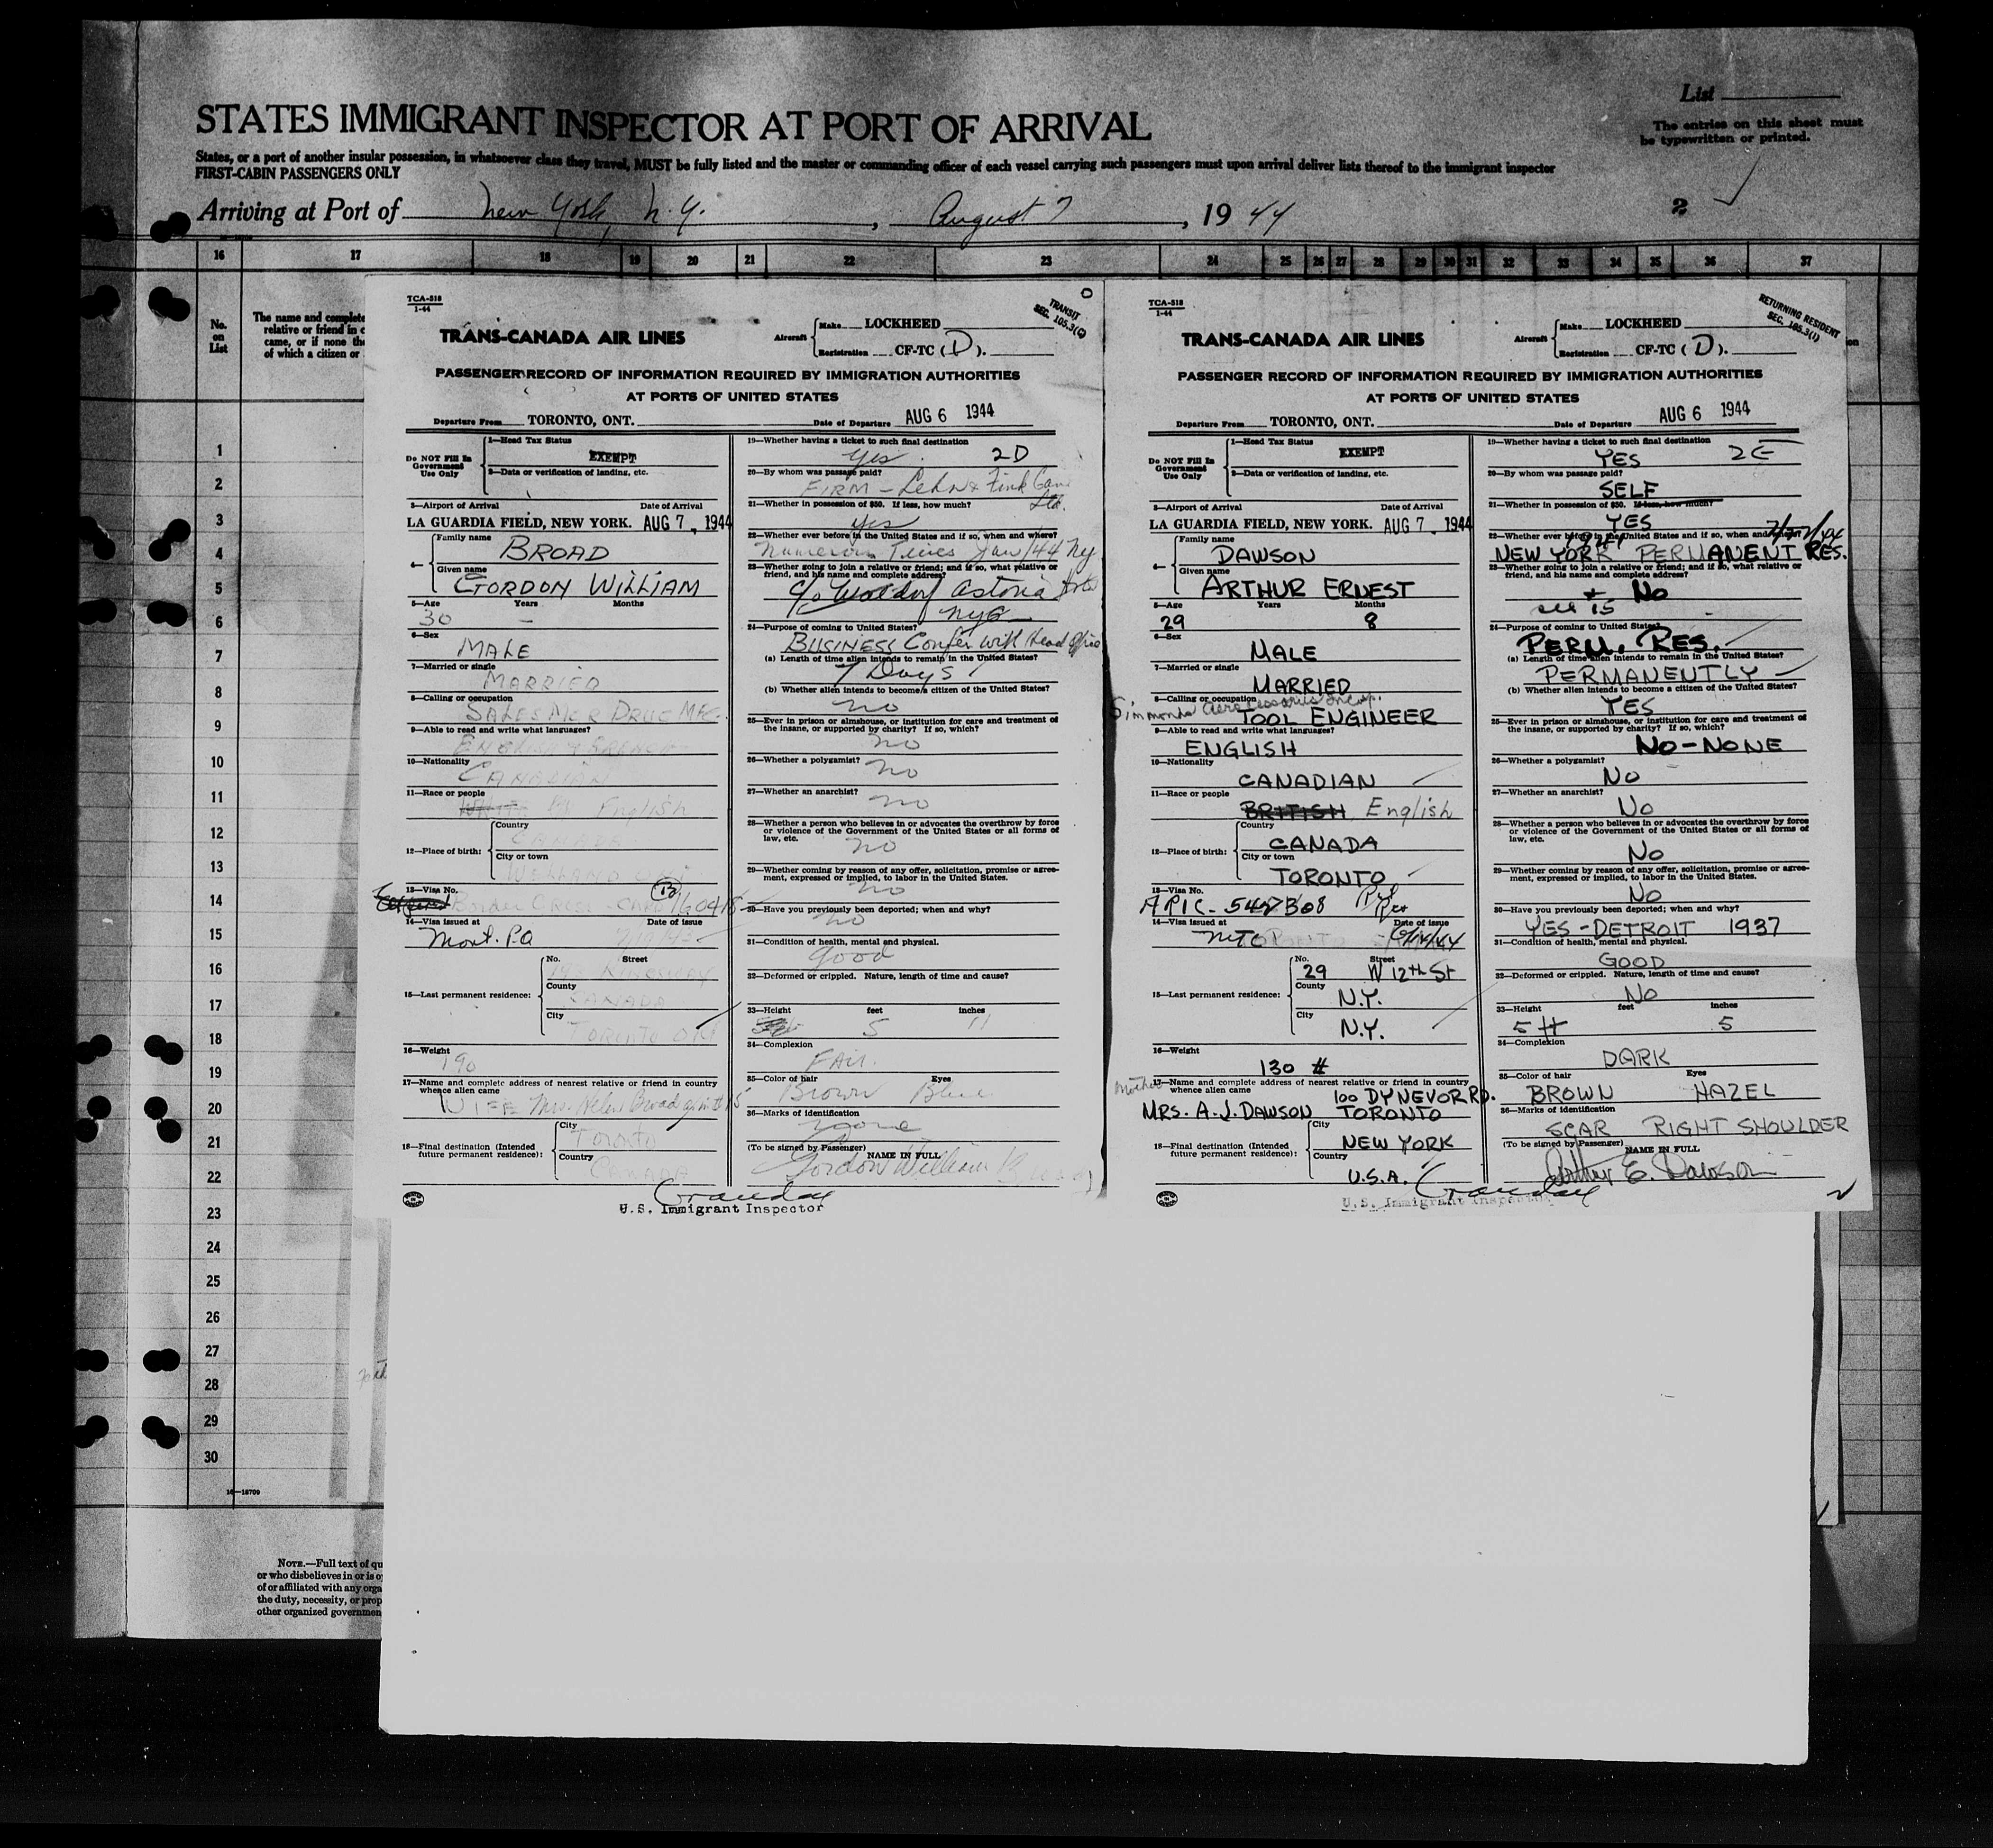 STATES IMMIGRANT INSPECTOR AT PORT OF ARRIVAL
List
The entries on this sheet must
be typewritten or printed.
States, or a port of another insular possession, in whatsoever class they travel, MUST be fully listed and the master or commanding officer of each vessel carrying such passengers must upon arrival deliver lists thereof to the immigrant inspector
FIRST-CABIN PASSENGERS ONLY
Arriving at Port of New York, N.Y., August 7, 1944
2
16 17 18 19 20 21 22 23 24 25 26 27 28 29 30 31 32 33 34 35 36 37
No.
on
List
The name and complete
relative or friend in c
came, or if none the
of which a citizen or
1
2
3
4
5
6
7
8
9
10
11
12
13
14
15
16
17
18
19
20
21
22
23
24
25
26
27
28
29
30
16—18709
NOTE.—Full text of qu
or who disbelieves in or is o
of or affiliated with any orga
the duty, necessity, or prop
other organized governmen
TCA-518
1-44
TRANSIT
SEC. 105.3(c)
TRANS-CANADA AIR LINES
Aircraft Make LOCKHEED
Registration CF-TC (D).
PASSENGER RECORD OF INFORMATION REQUIRED BY IMMIGRATION AUTHORITIES
AT PORTS OF UNITED STATES
Departure From TORONTO, ONT. Date of Departure AUG 6 1944
Do NOT Fill In
Government
Use Only
1—Head Tax Status
EXEMPT
2—Data or verification of landing, etc.
3—Airport of Arrival Date of Arrival
LA GUARDIA FIELD, NEW YORK. AUG 7, 1944
4— Family name
BROAD
Given name
GORDON WILLIAM
5—Age Years Months
30 —
6—Sex
MALE
7—Married or single
MARRIED
8—Calling or occupation
SALES MGR DRUG MFG.
9—Able to read and write what languages?
10—Nationality
CANADIAN
11—Race or people
English
12—Place of birth: Country
City or town
13—Visa No.
Border Cross
14—Visa issued at Date of issue
Mont. PQ
15—Last permanent residence: No. Street
KINGSWAY
County
CANADA
City
TORONTO ONT
16—Weight
190
17—Name and complete address of nearest relative or friend in country
whence alien came
WIFE Mrs. Helen Broad as in # 15
18—Final destination (Intended
future permanent residence): City
Toronto
Country
CANADA
19—Whether having a ticket to such final destination
Yes. 2D
20—By whom was passage paid?
FIRM — Lehn & Fink Can Ltd.
21—Whether in possession of $50. If less, how much?
Yes
22—Whether ever before in the United States and if so, when and where?
Numerous Times Jan/44 NY
23—Whether going to join a relative or friend; and if so, what relative or
friend, and his name and complete address?
c/o Waldorf Astoria Hotel
NYC
24—Purpose of coming to United States?
BUSINESS Confer with Head Office
(a) Length of time alien intends to remain in the United States?
7 Days
(b) Whether alien intends to become a citizen of the United States?
no
25—Ever in prison or almshouse, or institution for care and treatment of
the insane, or supported by charity? If so, which?
no
26—Whether a polygamist?
no
27—Whether an anarchist?
no
28—Whether a person who believes in or advocates the overthrow by force
or violence of the Government of the United States or all forms of
law, etc.
no
29—Whether coming by reason of any offer, solicitation, promise or agree-
ment, expressed or implied, to labor in the United States.
no
30—Have you previously been deported; when and why?
no
31—Condition of health, mental and physical.
good
32—Deformed or crippled. Nature, length of time and cause?
33—Height feet inches
5 11
34—Complexion
FAIR.
35—Color of hair Eyes
Brown Blue
36—Marks of identification
none
(To be signed by Passenger) NAME IN FULL
Gordon William Broad
U.S. Immigrant Inspector
TCA-518
1-44
RETURNING RESIDENT
SEC. 105.3(1)
TRANS-CANADA AIR LINES
Aircraft Make LOCKHEED
Registration CF-TC (D).
PASSENGER RECORD OF INFORMATION REQUIRED BY IMMIGRATION AUTHORITIES
AT PORTS OF UNITED STATES
Departure From TORONTO, ONT. Date of Departure AUG 6 1944
Do NOT Fill In
Government
Use Only
1—Head Tax Status
EXEMPT
2—Data or verification of landing, etc.
3—Airport of Arrival Date of Arrival
LA GUARDIA FIELD, NEW YORK. AUG 7, 1944
4— Family name
DAWSON
Given name
ARTHUR ERNEST
5—Age Years Months
29 8
6—Sex
MALE
7—Married or single
MARRIED
8—Calling or occupation
Simmonds Aerocessories Incorp.
TOOL ENGINEER
9—Able to read and write what languages?
ENGLISH
10—Nationality
CANADIAN
11—Race or people
BRITISH English
12—Place of birth: Country
CANADA
City or town
TORONTO
13—Visa No.
14—Visa issued at Date of issue
15—Last permanent residence: No. Street
29 W 12th St
County
N.Y.
City
N.Y.
16—Weight
130 #
17—Name and complete address of nearest relative or friend in country
whence alien came
Mother 100 DYNEVOR RD.
MRS. A.J. DAWSON TORONTO
18—Final destination (Intended
future permanent residence): City
NEW YORK
Country
U.S.A.
19—Whether having a ticket to such final destination
YES 2E
20—By whom was passage paid?
SELF
21—Whether in possession of $50. If less, how much?
YES
22—Whether ever before in the United States and if so, when and where?
NEW YORK PERMANENT RES.
23—Whether going to join a relative or friend; and if so, what relative or
friend, and his name and complete address?
No
see 15
24—Purpose of coming to United States?
PERM. RES.
(a) Length of time alien intends to remain in the United States?
PERMANENTLY
(b) Whether alien intends to become a citizen of the United States?
YES
25—Ever in prison or almshouse, or institution for care and treatment of
the insane, or supported by charity? If so, which?
No-NONE
26—Whether a polygamist?
No
27—Whether an anarchist?
No
28—Whether a person who believes in or advocates the overthrow by force
or violence of the Government of the United States or all forms of
law, etc.
No
29—Whether coming by reason of any offer, solicitation, promise or agree-
ment, expressed or implied, to labor in the United States.
No
30—Have you previously been deported; when and why?
YES-DETROIT 1937
31—Condition of health, mental and physical.
GOOD
32—Deformed or crippled. Nature, length of time and cause?
No
33—Height feet inches
5 ft 5
34—Complexion
DARK
35—Color of hair Eyes
BROWN HAZEL
36—Marks of identification
SCAR RIGHT SHOULDER
(To be signed by Passenger) NAME IN FULL
Arthur E. Dawson
U.S. Immigrant Inspector